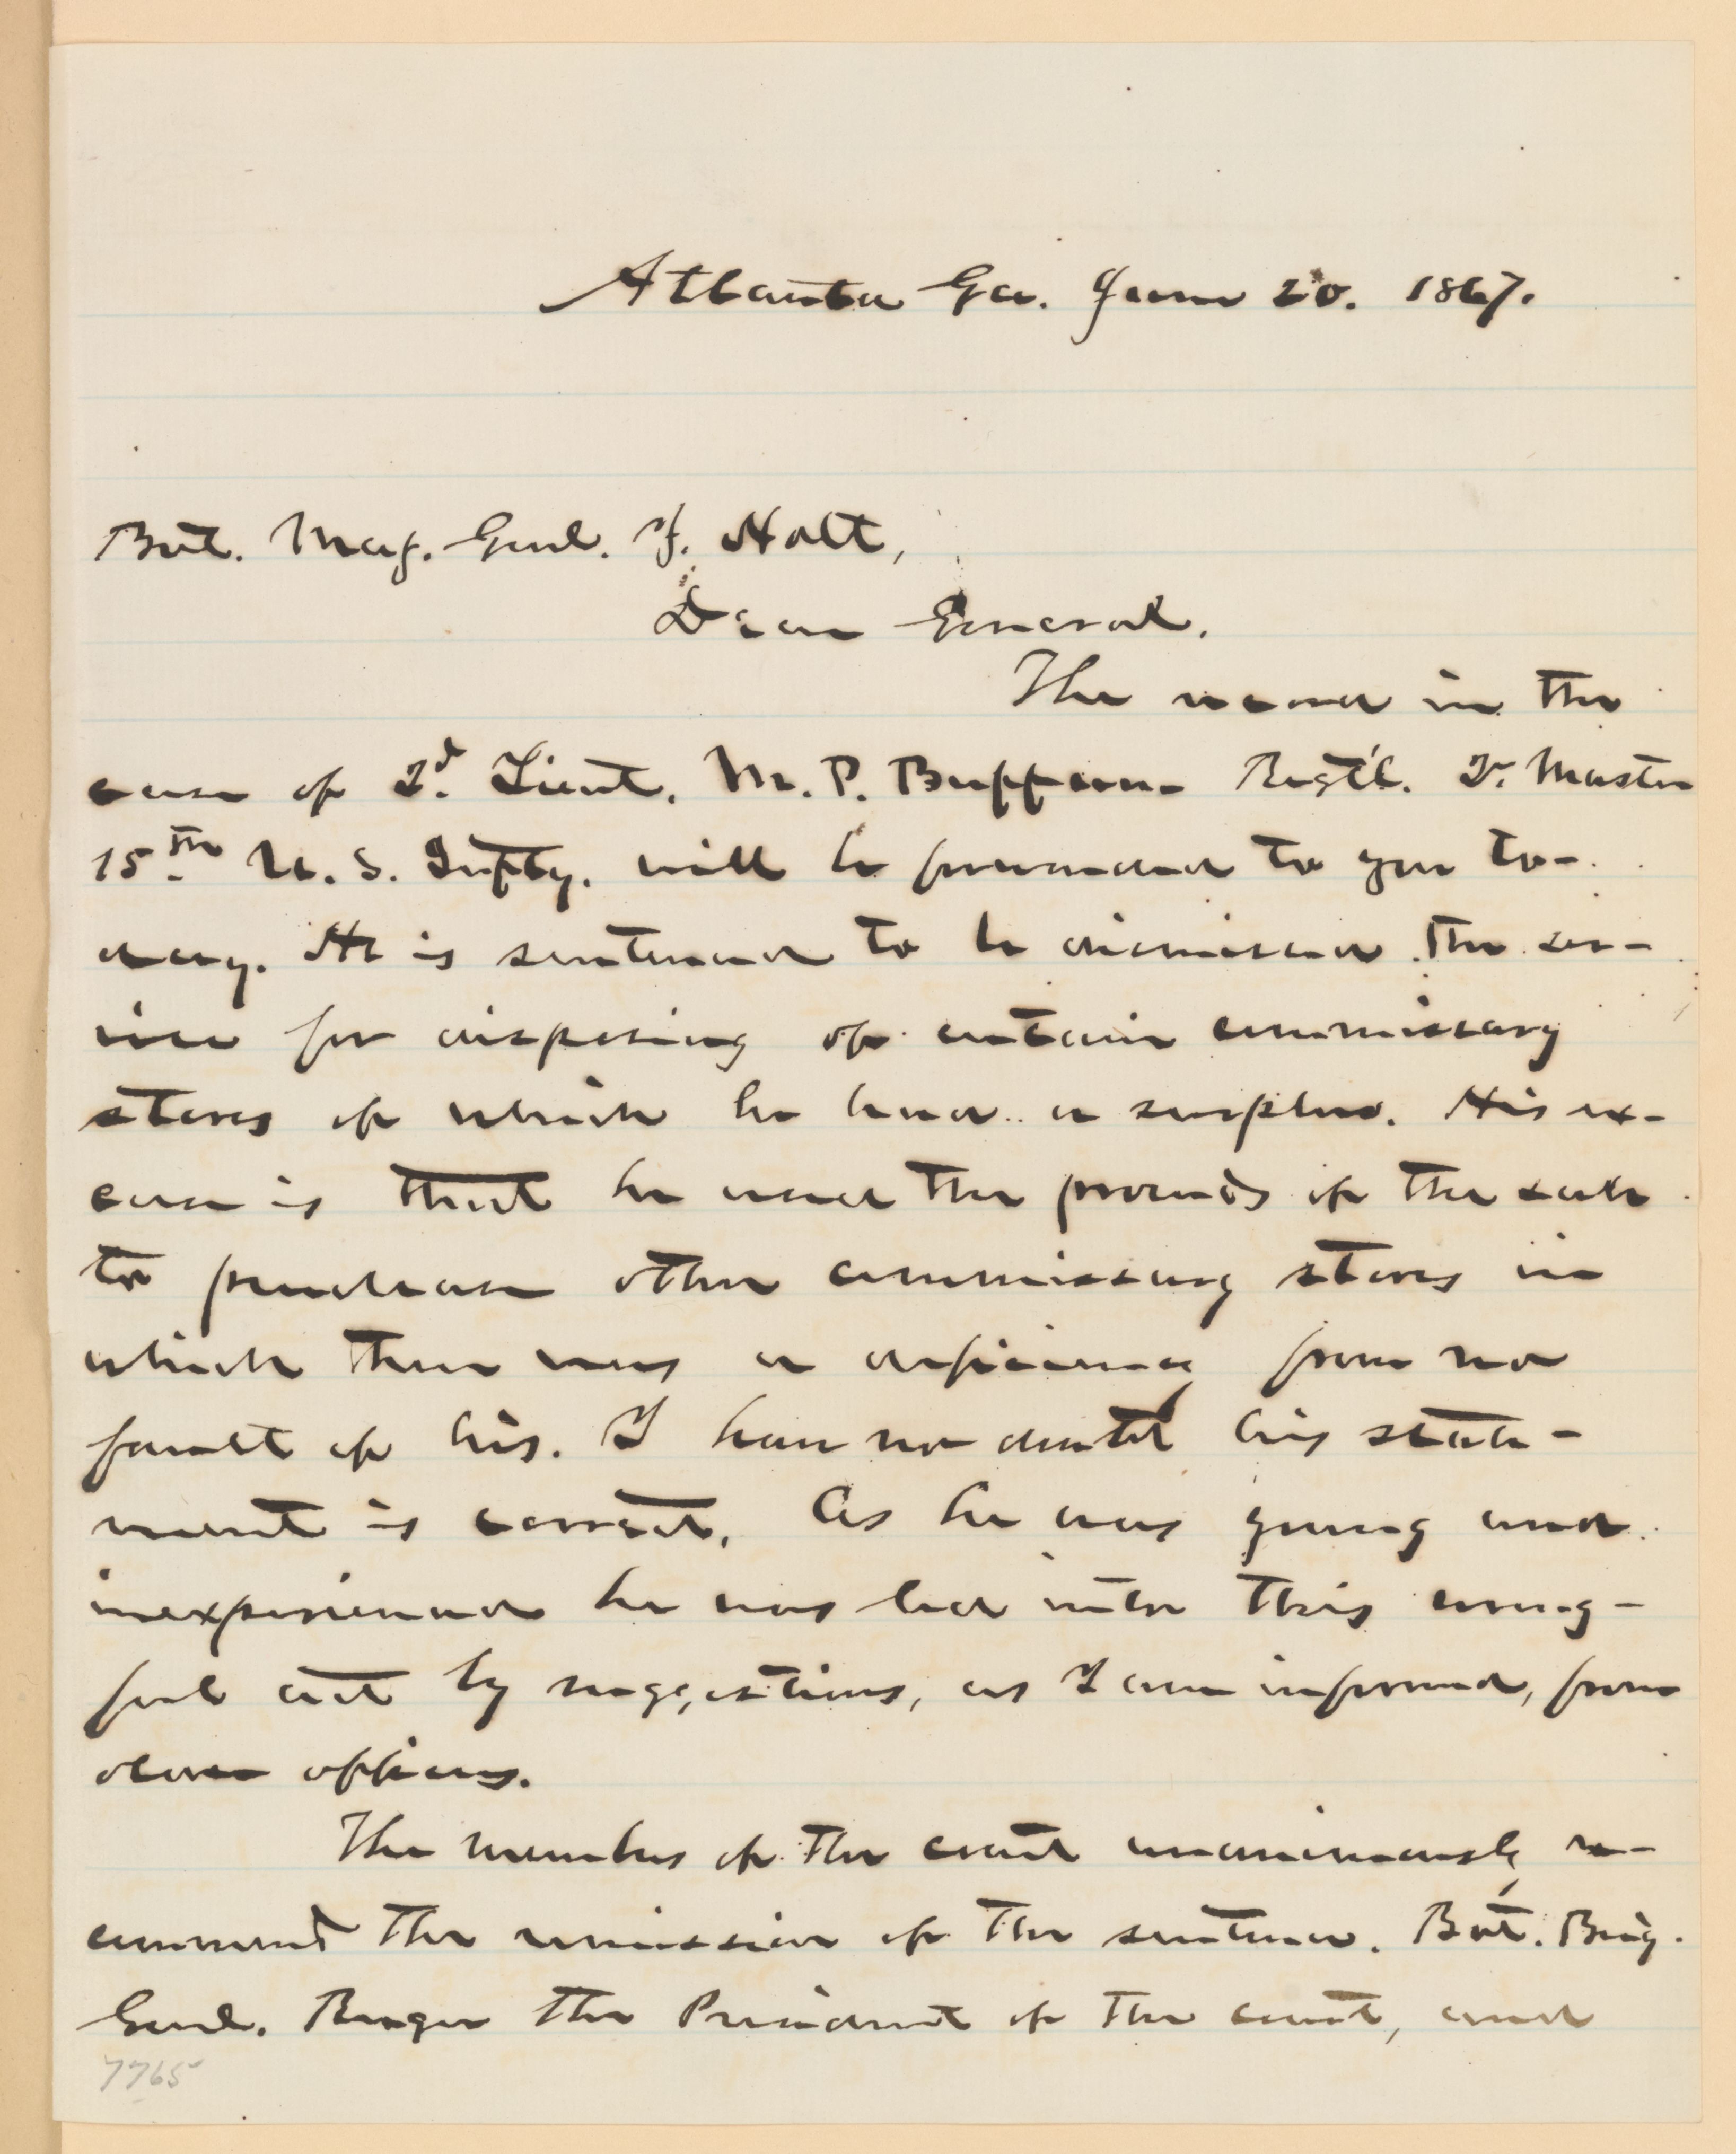 Atlanta Ga. June 20. 1867.
Bvt. Maj. Genl. J. Holt,
Dear General.
The record in the
case of 2d. Lieut. M. P. Buffum Regt'l. Qr. Master
15th U. S. Infty. will be forwarded to you to-
day. He is sentenced to be dismissed the ser-
vice for disposing of certain commissary
stores of which he had a surplus. His ex-
cuse is that he used the proceeds of the sale
to purchase other commissary stores in
which there was a deficiency from no
fault of his. I have no doubt his state-
ment is correct. As he was young and
inexperienced he was led into this wrong-
ful act by suggestions, as I am informed, from
older officers.
The members of the court unanimously re-
commend the remission of the sentence. Bvt. Brig.
Genl. Ruger the President of the court, and
7765